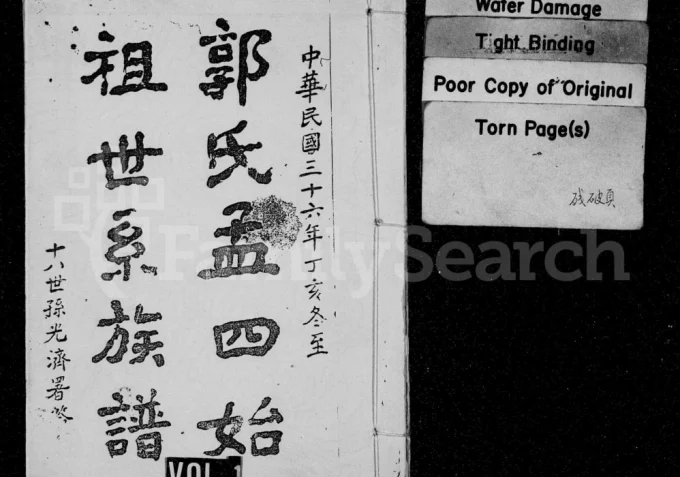 中華民國三十六年丁亥冬至
郭氏孟四始
祖世系族譜
十八世孫光濟署耑
VOL. 1
Water Damage
Tight Binding
Poor Copy of Original
Torn Page(s)
残破頁
FamilySearch